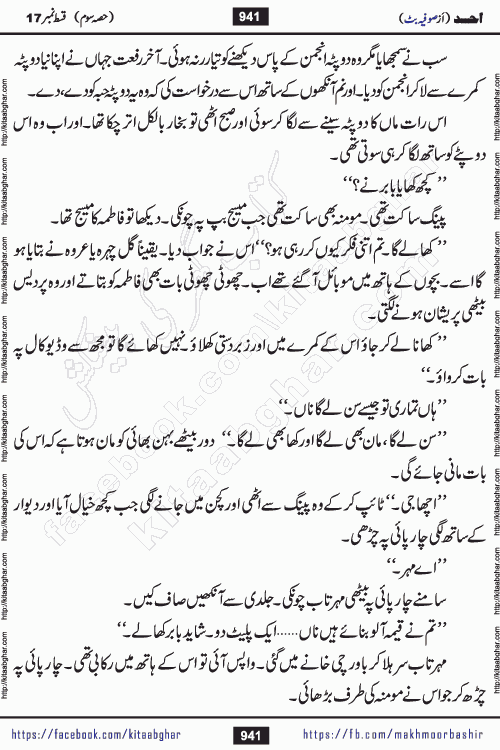 احد (از صوفیہ بٹ) 941 (حصہ سوم) قسط نمبر 17
سب نے سمجھایا مگر وہ دوپٹہ انجمن کے پاس دیکھنے کو تیار نہ ہوئی۔ آخر رفعت جہاں نے اپنا نیا دوپٹہ
کمرے سے لا کر انجمن کو دیا۔ اور نم آنکھوں کے ساتھ اس سے درخواست کی کہ وہ یہ دوپٹہ حبہ کو دے، دے۔
اس رات ماں کا دوپٹہ سینے سے لگا کر سوئی اور صبح اٹھی تو بخار بالکل اتر چکا تھا۔ اور اب وہ اس
دوپٹے کو ساتھ لگا کر ہی سوتی تھی۔
”کچھ کھایا بابر نے؟“
پینگ ساکت تھی۔ مومنہ بھی ساکت تھی جب میسج بپ پہ چونکی۔ دیکھا تو فاطمہ کا میسج تھا۔
”کھا لے گا۔ تم اتنی فکر کیوں کر رہی ہو؟“ اس نے جواب دیا۔ یقیناً گل چہرہ یا عروہ نے بتایا ہو
گا اسے۔ بچوں کے ہاتھ میں موبائل آ گئے تھے اب۔ چھوٹی چھوٹی بات بھی فاطمہ کو بتاتے اور وہ پردیس
بیٹھی پریشان ہونے لگتی۔
”کھانا لے کر جاؤ اس کے کمرے میں اور زبردستی کھلاؤ۔ نہیں کھائے گا تو مجھ سے وڈیو کال پہ
بات کرواؤ۔“
”ہاں تمہاری تو جیسے سن لے گا ناں۔“
”سن لے گا، مان بھی لے گا اور کھا بھی لے گا۔“ دور بیٹھے بہن بھائی کو مان ہوتا ہے کہ اس کی
بات مانی جائے گی۔
”اچھا جی۔“ ٹائپ کر کے وہ پینگ سے اٹھی اور کچن میں جانے لگی جب کچھ خیال آیا اور دیوار
کے ساتھ لگی چارپائی پہ چڑھی۔
”اے مہر۔“
سامنے چارپائی پہ بیٹھی مہرتاب چونکی۔ جلدی سے آنکھیں صاف کیں۔
”تم نے قیمہ آلو بنائے ہیں ناں...... ایک پلیٹ دو۔ شاید بابر کھا لے۔“
مہرتاب سر ہلا کر باورچی خانے میں گئی۔ واپس آئی تو اس کے ہاتھ میں رکابی تھی۔ چارپائی پہ
چڑھ کر جو اس نے مومنہ کی طرف بڑھائی۔
https://facebook.com/kitaabghar 941 https://fb.com/makhmoorbashir
http://kitaabghar.com http://kitaabghar.com http://kitaabghar.com http://kitaabghar.com http://kitaabghar.com
http://kitaabghar.com http://kitaabghar.com http://kitaabghar.com http://kitaabghar.com http://kitaabghar.com
کتاب گھر کی پیشکش
kitaabghar.com
facebook.com/kitaabghar